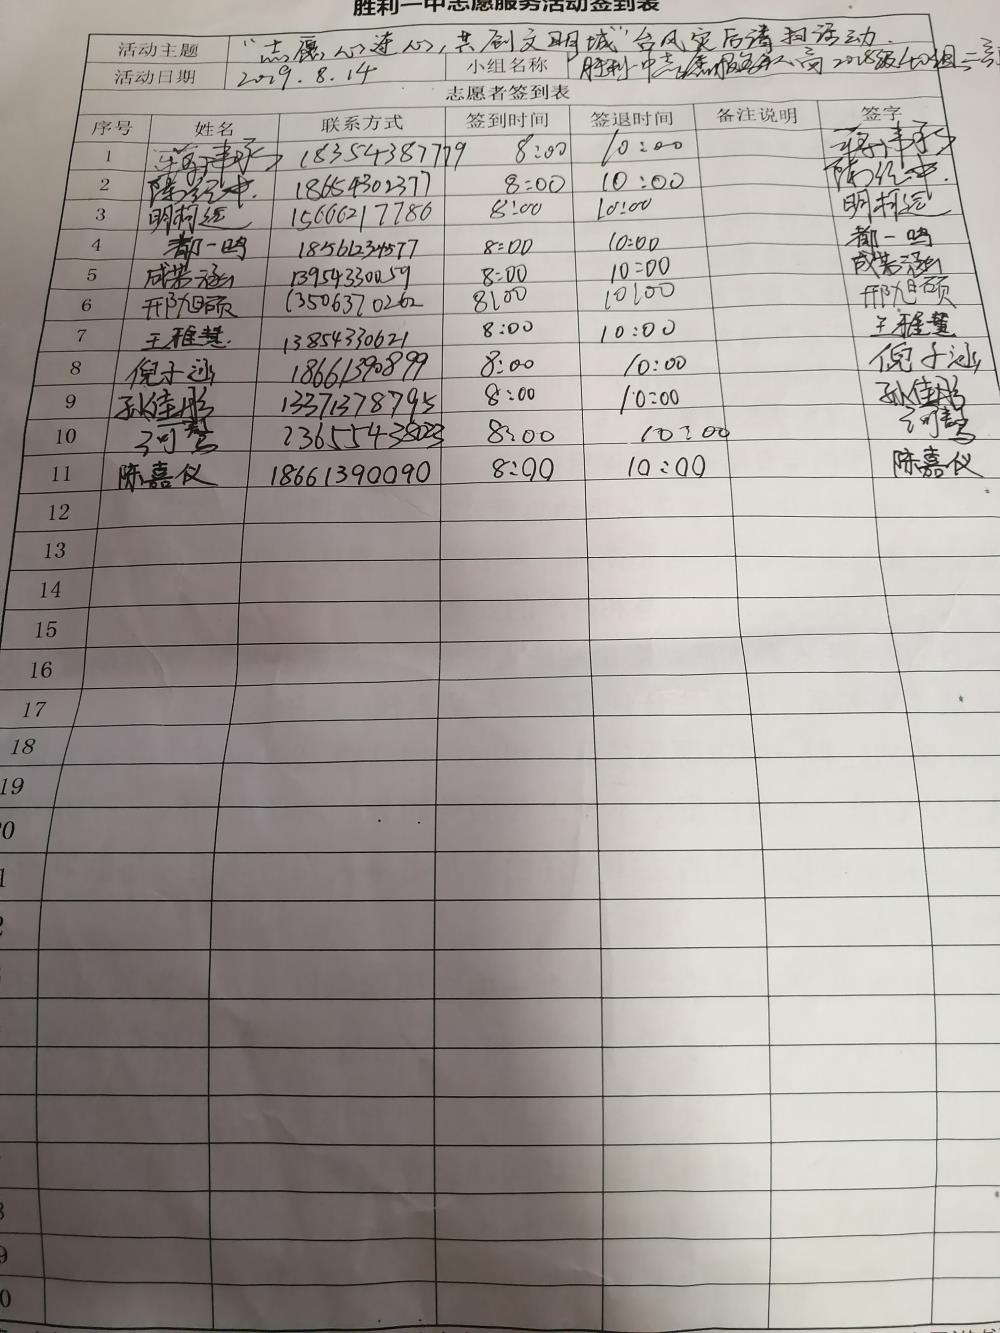 胜利一中志愿服务活动签到表
活动主题 "志愿心连心,共创文明城"台风灾后清扫活动.
活动日期 2019.8.14 小组名称 胜利一中志愿服务队高2018级
志愿者签到表
序号 姓名 联系方式 签到时间 签退时间 备注说明 签字
1 18354387779 8:00 10:00
2 18654302377 8:00 10:00
3 明柯远 15666217786 8:00 10:00 明柯远
4 都一鸣 18561234577 8:00 10:00 都一鸣
5 成若涵 13954330059 8:00 10:00 成若涵
6 邢旭硕 13506370262 8:00 10:00 邢旭硕
7 王雅慧 13854330621 8:00 10:00 王雅慧
8 倪子涵 18661390899 8:00 10:00 倪子涵
9 孙佳彤 13371378795 8:00 10:00 孙佳彤
10 8:00 10:00
11 陈嘉仪 18661390090 8:00 10:00 陈嘉仪
12
13
14
15
16
17
18
19
0
1
2
8
9
0